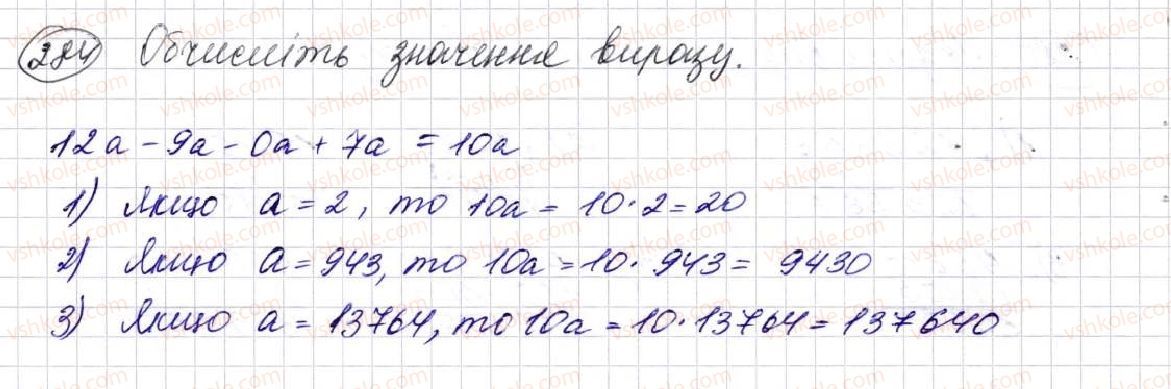 284 Обчисліть значення виразу.
12a - 9a - 0a + 7a = 10a
1) Якщо a = 2, то 10a = 10·2 = 20
2) Якщо a = 943, то 10a = 10·943 = 9430
3) Якщо a = 13764, то 10a = 10·13764 = 137640